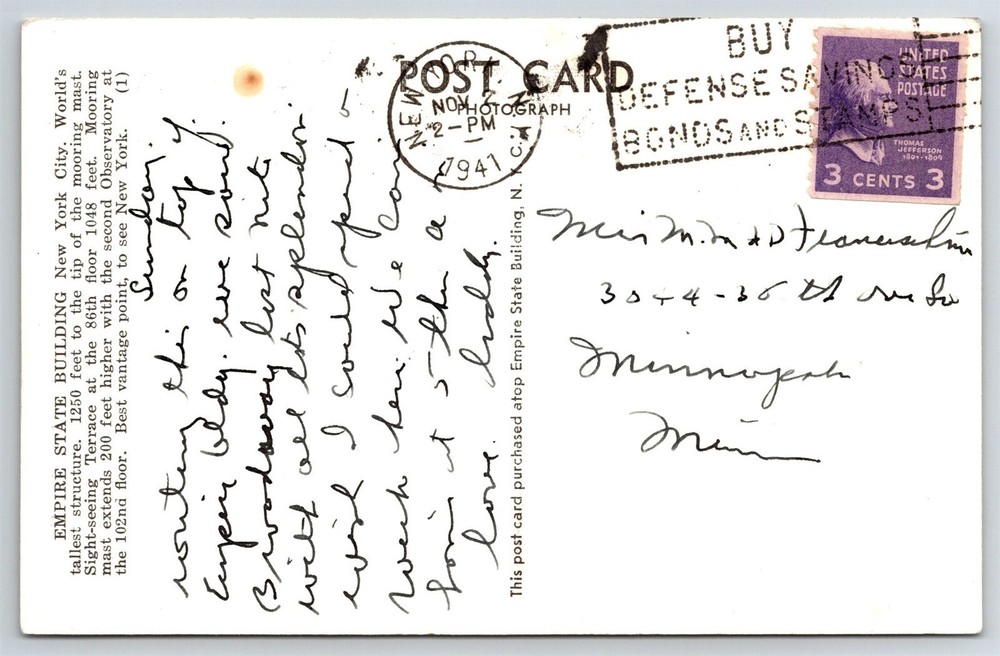 EMPIRE STATE BUILDING New York City. World's
tallest structure. 1250 feet to the tip of the mooring mast.
Sight-seeing Terrace at the 86th floor 1048 feet. Mooring
mast extends 200 feet higher with the second Observatory at
the 102nd floor. Best vantage point, to see New York. (1)
Sunday.
writing this on top of
Empire bldg. we
Broadway last nite
with all its splendor
wish I could spend a
week here. We
at 5 then a
love. Daddy.
This post card purchased atop Empire State Building, N. Y. C.
POST CARD
PHOTOGRAPH
NEW YORK, N.Y.
NOV
2-PM
1941
BUY
DEFENSE SAVINGS
BONDS AND STAMPS
UNITED
STATES
POSTAGE
THOMAS
JEFFERSON
1801-1809
3 CENTS 3
Miss M.
3044-36th ave So
Minneapolis
Minn